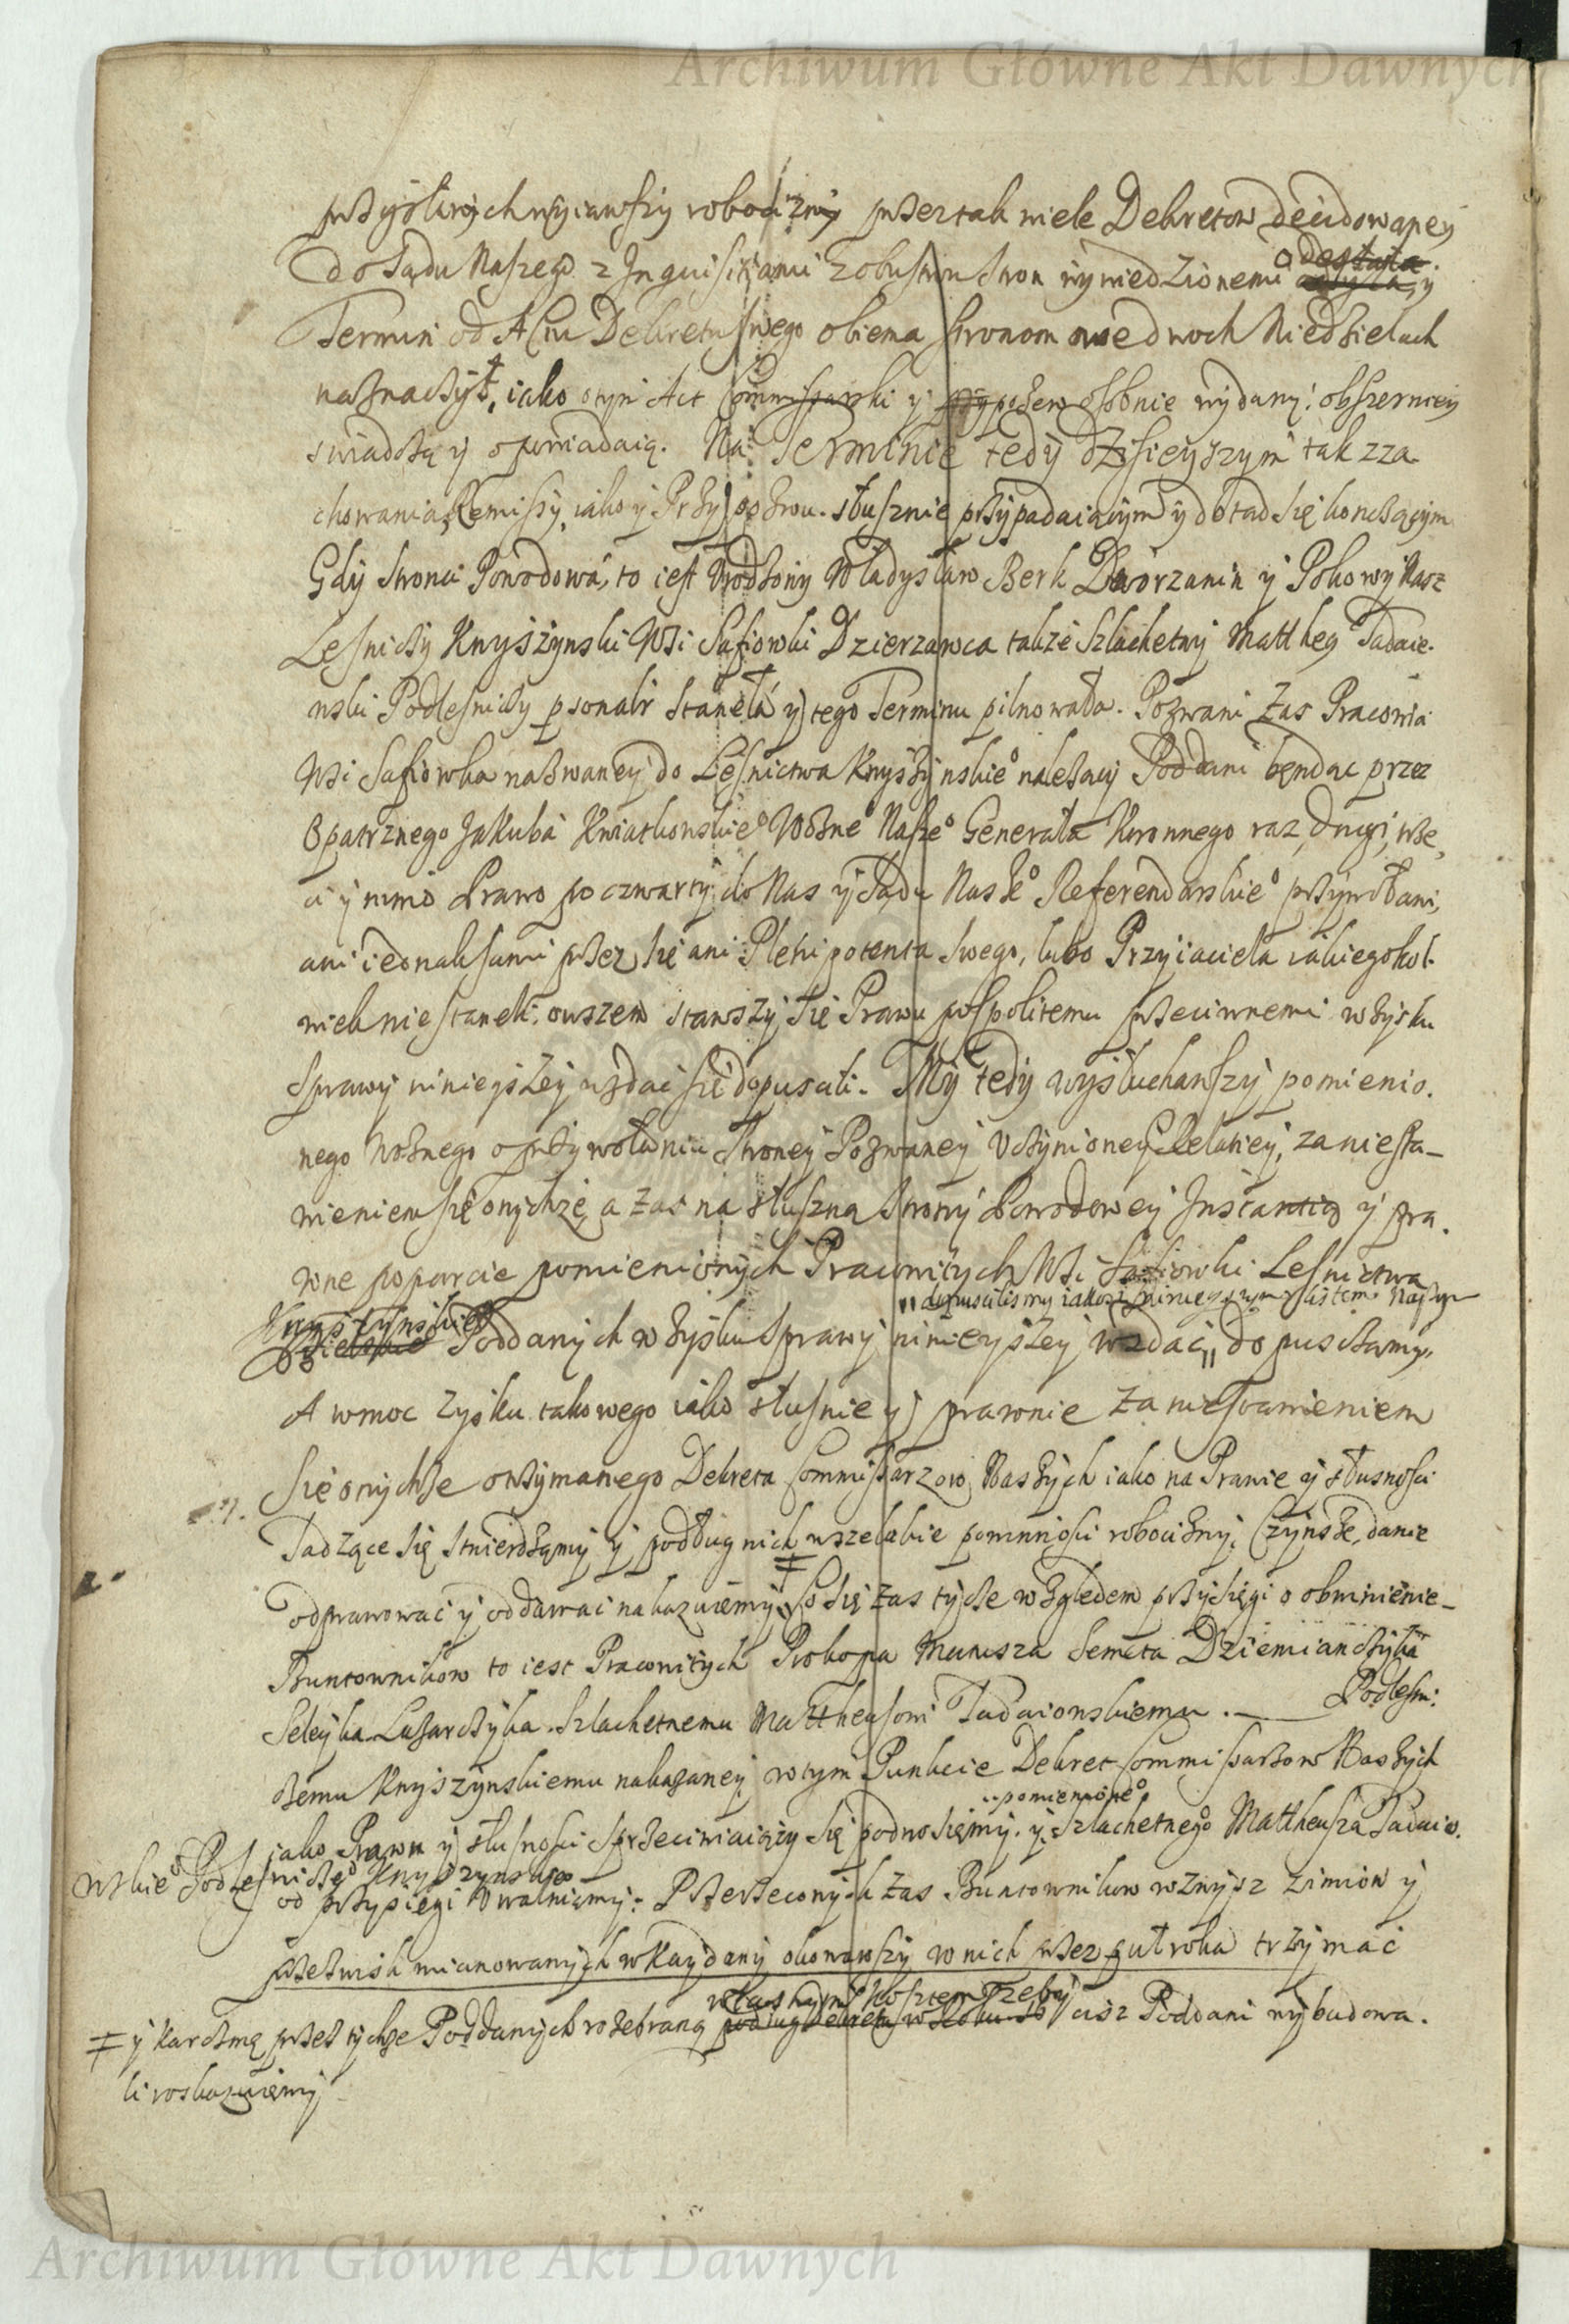 Archiwum Główne Akt Dawnych
przysłuchywiawszy robocizny przez tak wiele Dekretow decidowaney
do Sądu Naszego z Inquisitiami z obustron Stron wywiedzionemi odesłała y
Termin od Actu Dekretu swego obiema stronom we dwoch Niedzielach
naznaczył, iako o tym Act Commissarski y przypozew osobnie wydany obszerniey
swiadczą y opowiadaią. Na Terminie tedy dzisieyszym tak z za
chowania Remissy, iako y Przypozwu słusznie przypadaiącym y dotad się kończącym
Gdy strona Powodowa, to iest Urodzony Władysław Berk Dworzanin y Pokowy Nasz
Lesniczy Knyszynski Wsi Safiowki Dzierzawca takze Szlachetny Matthey Tadaie-
nski Podlesniczy psonalr staneła y tego Terminu pilnowała. Pozwani zas Pracowia
Wsi Safiowka nazwaney do Lesnictwa Knyszynskieo nalezący Poddani będac przez
Opatrznego Jakuba Kwiatkowskieo Wozneo Naszeo Generała Koronnego raz, drugi, trze
ci y mimo Prawo po czwarty do Nas y Sądu Naszeo Referendarskieo przywołani,
ani iednak sami przez się ani Plenipotenta swego, lubo Przyiaciela iakiegokol-
wiek nie staneli, owszem stawszy się Prawu pospolitemu przeciwnemi w zysku
sprawy ninieyszey wzdać się dopuscili. My tedy wysłuchawszy pomienio-
nego Woznego o przywołaniu Strony Pozwaney uczynioney Relatiey, za niesta-
wieniem się onychze, a zas na słuszną strony Powodowey Instantią y pra-
wne poparcie pomienionych Pracowitych Wsi Safiowki Lesnictwa
dopuscilismy iakosz ninieyszym Listem Naszym
Knyszynskieo Poddanych w zysku sprawy ninieyszey wzdać, dopusczamy.
A w moc zysku takowego iako słusnie y prawnie za niestawieniem
się onychze otrzymanego Dekreta Commissarzow Naszych iako na Prawie y słusnosci
sadzące się stwierdzamy y podług nich wszelakie powinnosci robocizny, Czynsze, danie
odprawować y oddawać nakazuiemy, ≠ Co się zas tycze względem przysięgi o obwinienie
Buntownikow to iest Pracowitych Prokopa Mamsza Semeta Dziemianczyka
Seleyka Lazarczyka. Szlachetnemu Mattheusowi Tadaionskiemu. — Podlesni-
czemu Knyszynskiemu nakazaney, w tym Punkcie Dekret Commissarzow Naszych
pomienioneo
iako Prawu y słusnosci sprzeciwiaiący się podnosiemy. y Szlachetnego Mattheusza Tadaio-
nskieo Podlesniczeo Knyszynskieo
od przysięgi uwalniemy: Przerzeconych zas Buntownikow wzwysz zimion y
przezwisk mianowanych w Kaydany okowawszy w nich przez puł roku trzymać
własnym kosztem zeby
≠ y Karczmę przez tychze Poddanych rozebraną podług Dekretu ciz Poddani wybudowa-
li roskazuiemy
Archiwum Główne Akt Dawnych